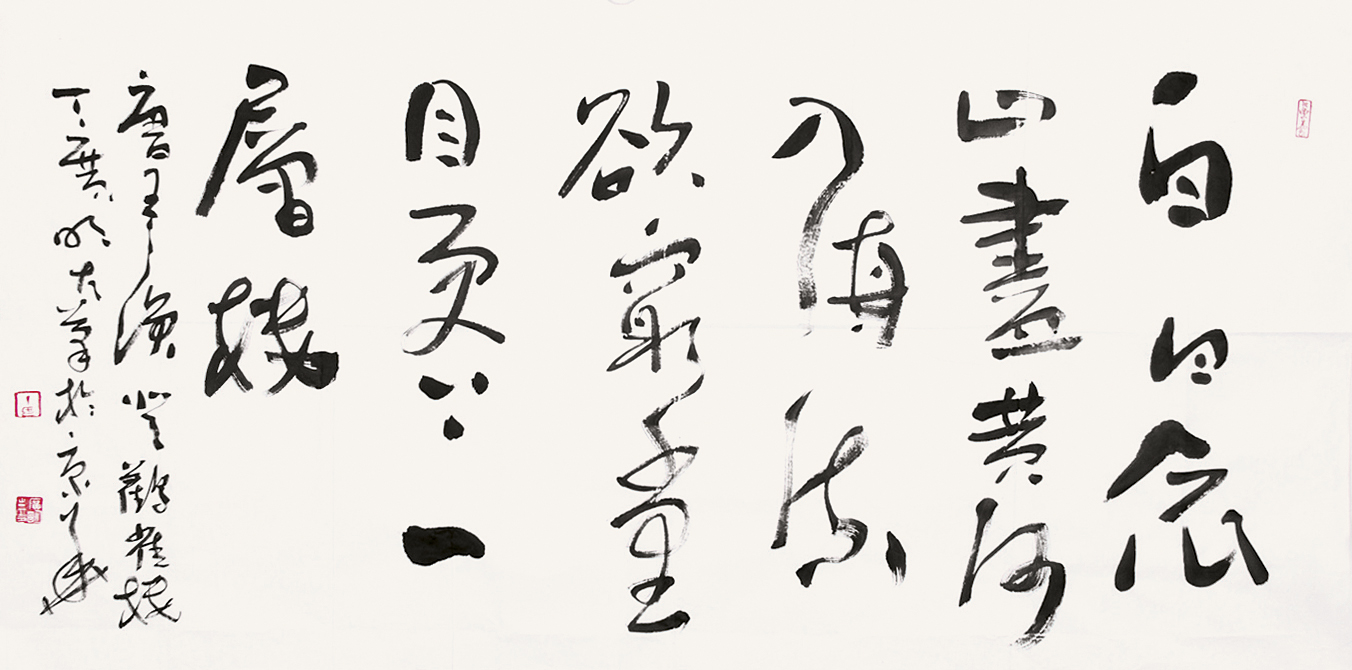 白日依
山盡黄河
入海流
欲窮千里
目更上一
層樓
唐王之渙登鸛雀樓
丁 明 於京